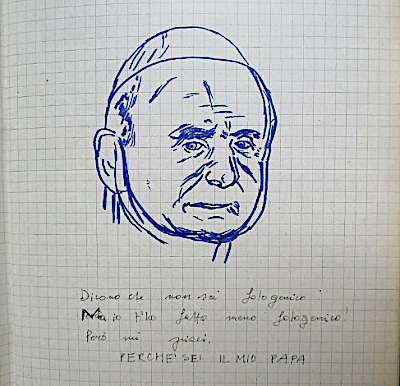 Dicono che non sei fotogenico!
Ma io t'ho fatto meno fotogenico!
Però mi piaci.
PERCHE' SEI IL MIO PAPA